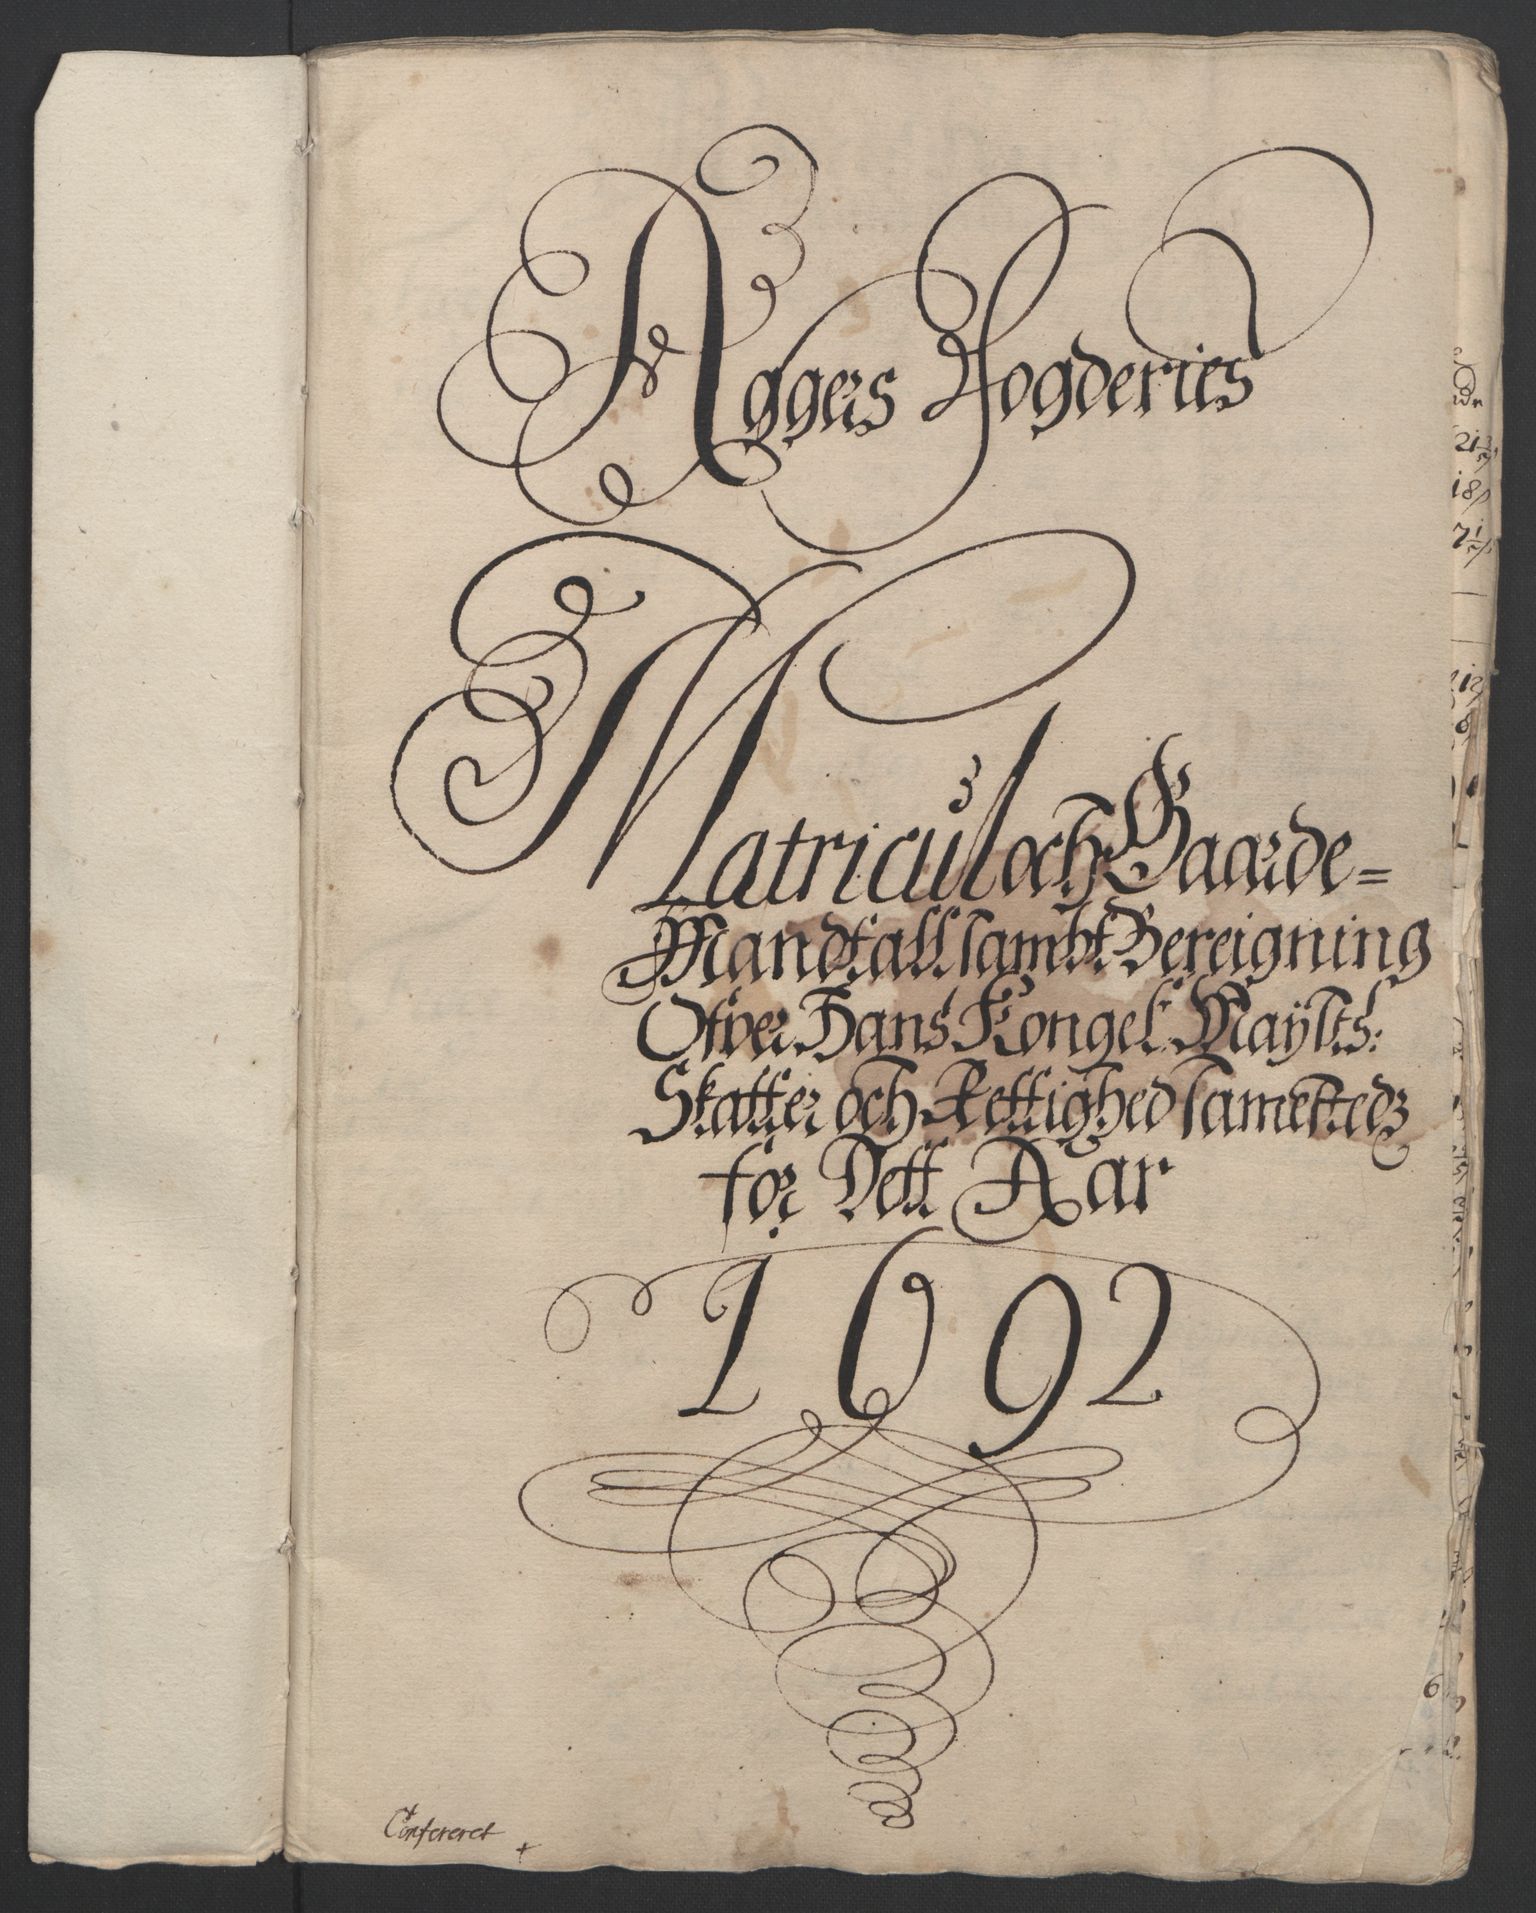 Aggers Fogderies
Matricul och Gaarde=
Mandtall sambt Bereigning
Ofver Hans Kongel: Maÿtts:
Skatter och Rettighed sammesteds
for Dett Aar
1692
Confereret